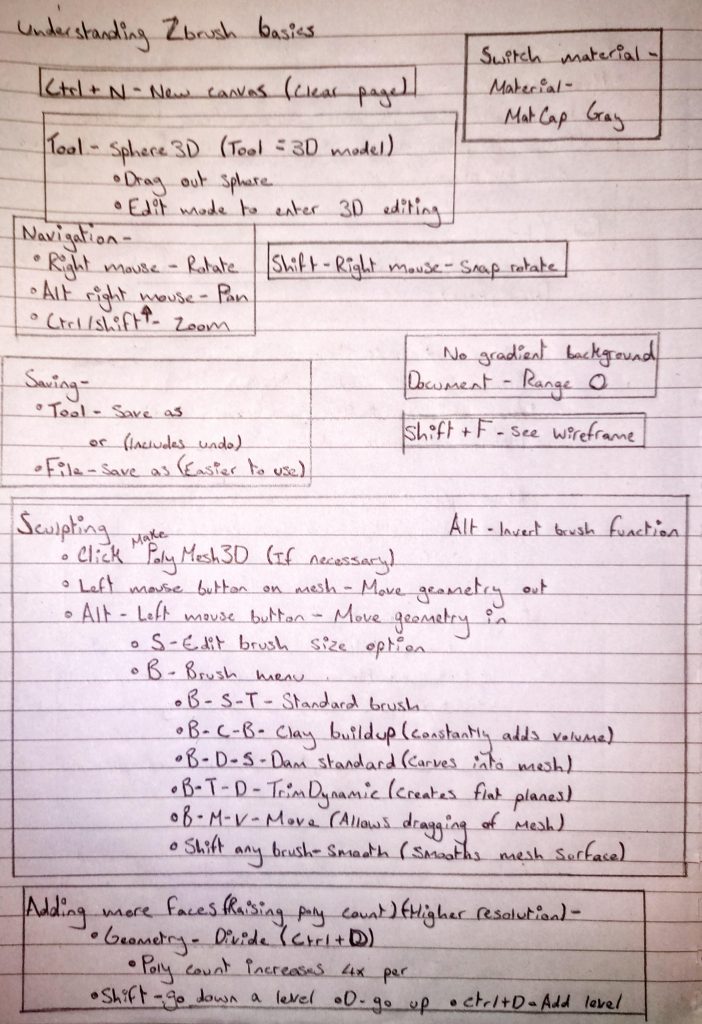 Understanding Zbrush basics
Switch material -
Material -
MatCap Gray
Ctrl + N - New canvas (Clear page)
Tool - Sphere 3D (Tool = 3D model)
• Drag out sphere
• Edit mode to enter 3D editing
Navigation -
• Right mouse - Rotate
• Alt right mouse - Pan
• Ctrl/shift ↑ - Zoom
Shift - Right mouse - Snap rotate
No gradient background
Document - Range 0
Saving -
• Tool - Save as
or (Includes undo)
• File - Save as (Easier to use)
Shift + F - See wireframe
Sculpting
Alt - Invert brush function
• Click Make PolyMesh3D (If necessary)
• Left mouse button on mesh - Move geometry out
• Alt - Left mouse button - Move geometry in
• S - Edit brush size option
• B - Brush menu
• B - S - T - Standard brush
• B - C - B - Clay buildup (Constantly adds volume)
• B - D - S - Dam standard (Carves into mesh)
• B - T - D - TrimDynamic (Creates flat planes)
• B - M - V - Move (Allows dragging of mesh)
• Shift any brush - Smooth (Smooths mesh surface)
Adding more faces (Raising poly count) (Higher resolution) -
• Geometry - Divide (Ctrl + D)
• Poly count increases 4x per
• Shift - go down a level • D - go up • Ctrl + D - Add level